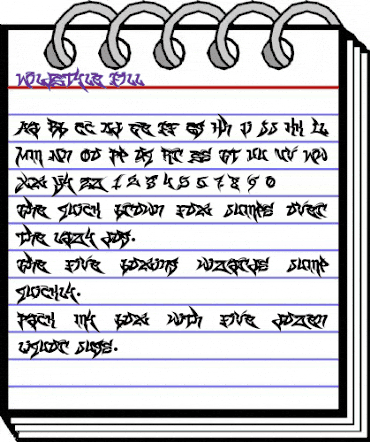 Wildstyle Fill
Aa Bb Cc Dd Ee Ff Gg Hh Ii Jj Kk Ll
Mm Nn Oo Pp Qq Rr Ss Tt Uu Vv Ww
Xx Yy Zz 1 2 3 4 5 6 7 8 9 0
the quick brown fox jumps over
the lazy dog.
the five boxing wizards jump
quickly.
Pack my box with five dozen
liquor jugs.